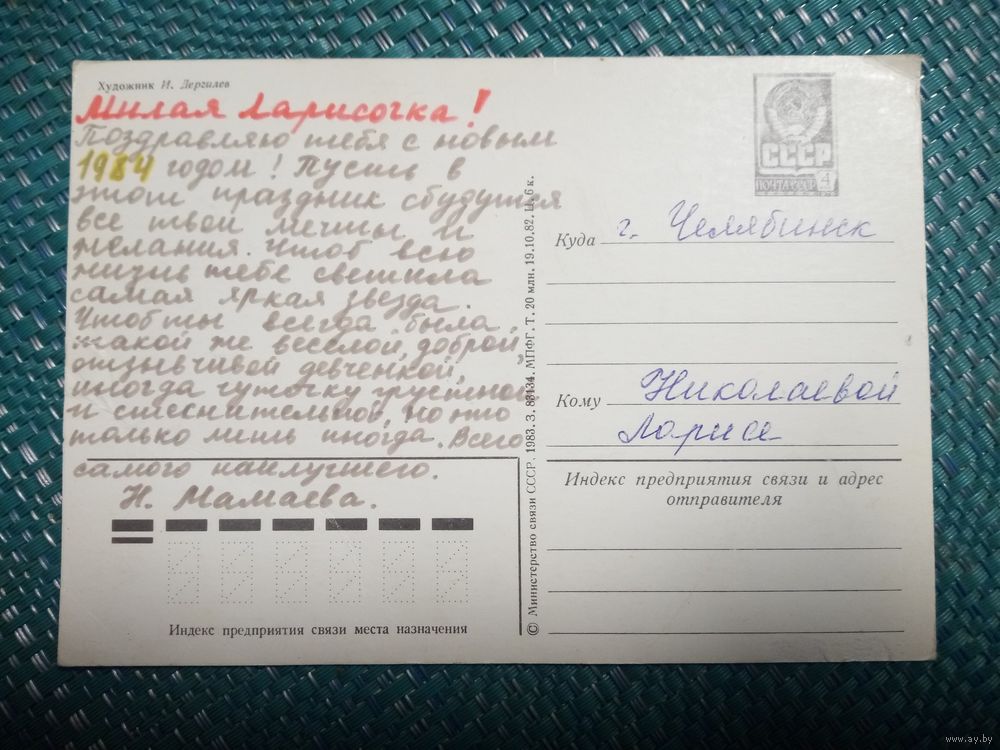 Художник И. Дергилев
Милая Ларисочка!
Поздравляю тебя с новым
1984 годом! Пусть в
этот праздник сбудутся
все твои мечты и
желания. Чтоб всю
жизнь тебе светила
самая яркая звезда.
Чтоб ты всегда была
такой же веселой, доброй,
отзывчивой девченкой,
иногда чуточку грустной
и стеснительной, но это
только лишь иногда. Всего
самого наилучшего.
Н. Мамаева.
Индекс предприятия связи места назначения
© Министерство связи СССР, 1983. З. 83134. МПФГ. Т. 20 млн. 19.10.82. Ц. 6 к.
СССР
ПОЧТА СССР 4
Куда г. Челябинск
Кому Николаевой
Ларисе
Индекс предприятия связи и адрес
отправителя
www.ay.by